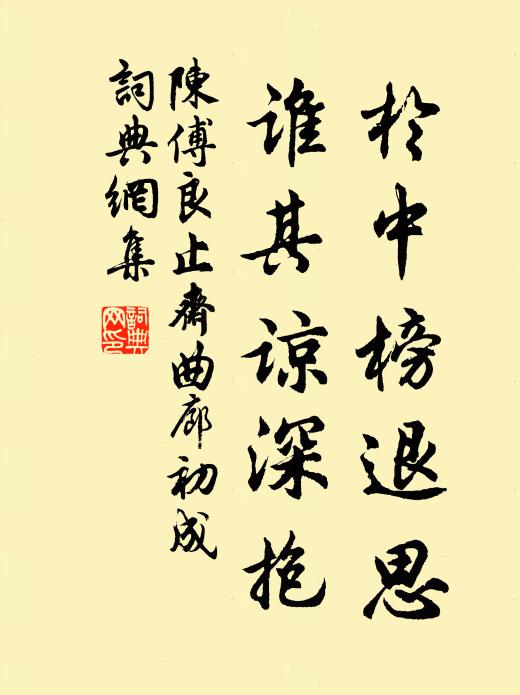 於中榜退思
谁其谅深抱
陳傅良止齋曲廊初成
詞典網集
詞典网印